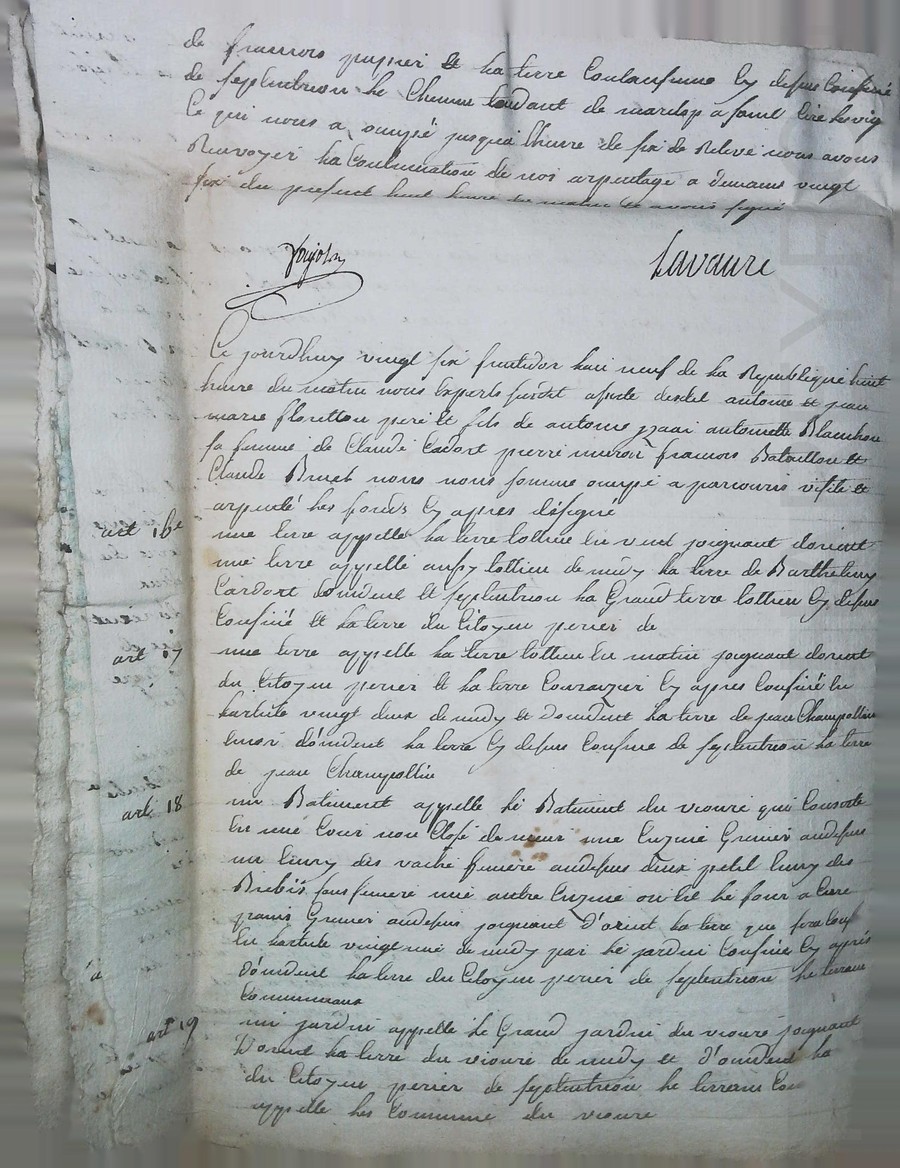 de francois papier et la terre Coulausume Cy depus Confiné
de septentrion le Chemin tendant de marilop a saint
Ce qui nous a ocupé jusqua lheure de six de Relevé nous avons
Renvoyer la Continuation de nos arpentage a demain vingt
six du present huit heure du matin et avons signé
Lavaure
Ce jourdhuy vingt six fructidor lan neuf de la Republique huit
heure du matin nous Experts susdit assisté desdit antoine et jean
marie floretton pere et fils de antoine antoinette Blanchon
sa femme de Claude Cadort pierre francois Bataillon et
Claude Brunet nous nous somme ocupé a parcourir visité et
arpenté les fonds Cy apres désigné
art 16e
une terre appellé la terre lottieu En vert joignant dorient
une terre appellé aussy lottieu de midy la terre de Barthelemy
Cardort doccident et septentrion la Grand terre lottieu Cy depus
Confiné et la terre du Citoyen perier de
art 17
une terre appellé la terre lottieu En matin joignant dorient
du Citoyen perier et la terre Couravier Cy apres Confiné En
larticle vingt deux de midy et doccident la terre de jean Champollion
encor doccident la terre Cy depus Confiné de septentrion la terre
de jean Champollion
art 18
un Batiment appellé le Batiment du vioure qui Consiste
En une Cour non Closé de meur une Cuzine Grenier audepus
un Ecury des vache feniere audepus deux petit Ecury des
Brebis sans feniere une autre Cuzine ou Est le four a Cuire
pain Grenier audepus joignant d'orient la terre que sera Conf
En larticle vingt une de midy par le jardin Confiné Cy aprés
d'occident la terre du Citoyen perier de septentrion le terrain
Communaux
art 19
un jardin appellé le Grand jardin du vioure joignant
D'orient la terre du vioure de midy et d'occident la
du Citoyen perier de septentrion le terrain Com
appellé les Commune du vioure